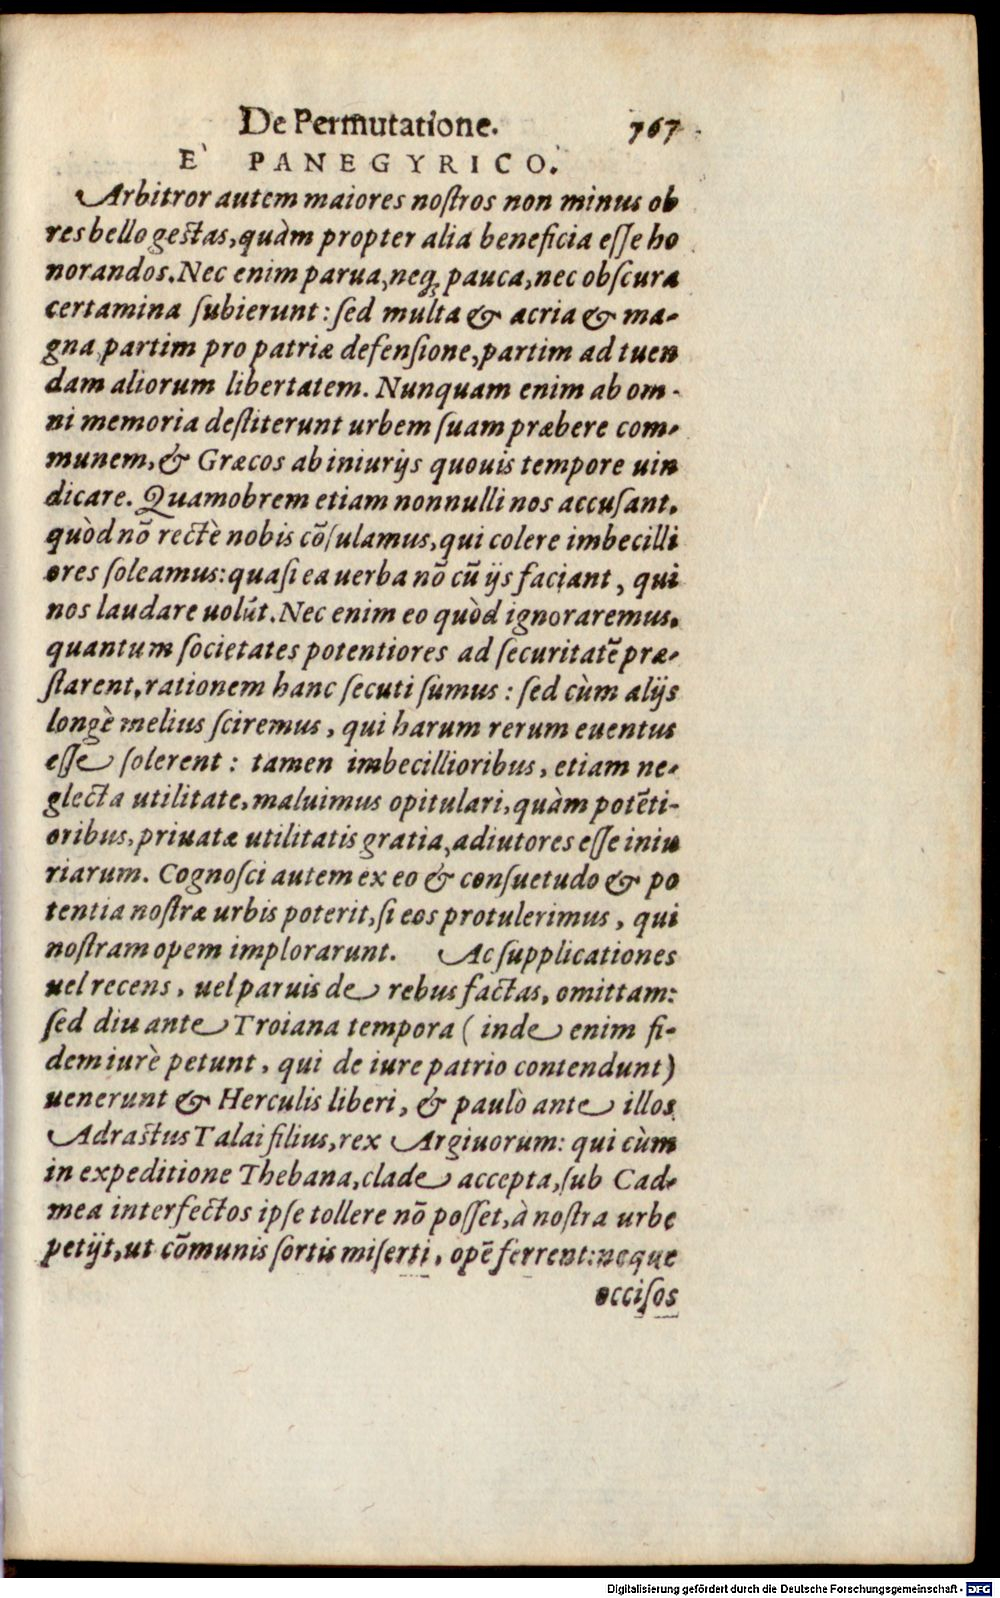 De Permutatione. 767
E` PANEGYRICO.
Arbitror autem maiores noſtros non minus ob
res bello geſtas, quàm propter alia beneficia eſſe ho
norandos. Nec enim parua, neq; pauca, nec obſcura
certamina ſubierunt: ſed multa & acria & ma-
gna, partim pro patriæ defenſione, partim ad tuen
dam aliorum libertatem. Nunquam enim ab om-
ni memoria deſtiterunt urbem ſuam præbere com-
munem, & Græcos ab iniurijs quouis tempore uin
dicare. Quamobrem etiam nonnulli nos accuſant,
quòd nõ rectè nobis cõſulamus, qui colere imbecilli
ores ſoleamus: quaſi ea uerba nõ cũ ijs faciant, qui
nos laudare uolũt. Nec enim eo quòd ignoraremus,
quantum ſocietates potentiores ad ſecuritatẽ præ-
ſtarent, rationem hanc ſecuti ſumus: ſed cùm alijs
longè melius ſciremus, qui harum rerum euentus
eſſe ſolerent: tamen imbecillioribus, etiam ne-
glecta utilitate, maluimus opitulari, quàm potẽti-
oribus, priuatæ utilitatis gratia, adiutores eſſe iniu
riarum. Cognoſci autem ex eo & conſuetudo & po
tentia noſtræ urbis poterit, ſi eos protulerimus, qui
noſtram opem implorarunt. Ac ſupplicationes
uel recens, uel paruis de rebus factas, omittam:
ſed diu ante Troiana tempora (inde enim fi-
dem iurè petunt, qui de iure patrio contendunt)
uenerunt & Herculis liberi, & paulò ante illos
Adraſtus Talai filius, rex Argiuorum: qui cùm
in expeditione Thebana, clade accepta, ſub Cad-
mea interfectos ipſe tollere nõ poſſet, à noſtra urbe
petijt, ut cõmunis ſortis miſerti, opẽ ferrent: neque
occiſos
Digitalisierung gefördert durch die Deutsche Forschungsgemeinschaft - DFG